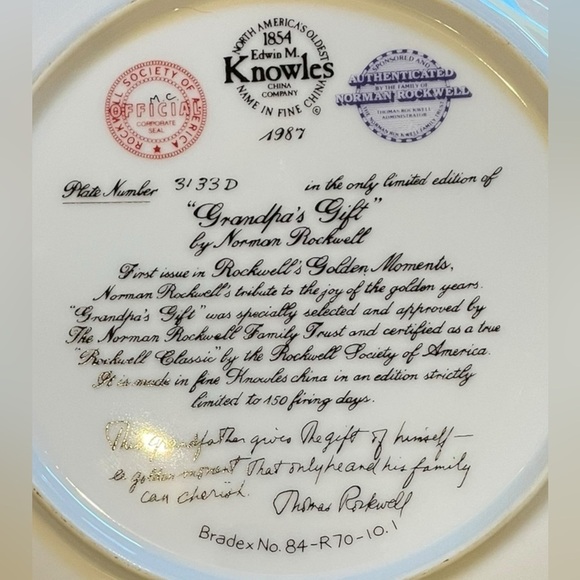 ROCKWELL SOCIETY OF AMERICA
MC
OFFICIAL
CORPORATE
SEAL
NORTH AMERICA'S OLDEST
1854
Edwin M.
Knowles
CHINA
COMPANY
NAME IN FINE CHINA
©
1987
SPONSORED AND
AUTHENTICATED
BY THE FAMILY OF
NORMAN ROCKWELL
THOMAS ROCKWELL
ADMINISTRATOR
NORMAN ROCKWELL FAMILY TRUST
Plate Number 3133D in the only limited edition of
"Grandpa's Gift"
by Norman Rockwell
First issue in Rockwell's Golden Moments,
Norman Rockwell's tribute to the joy of the golden years.
"Grandpa's Gift" was specially selected and approved by
The Norman Rockwell Family Trust and certified as a true
"Rockwell Classic" by the Rockwell Society of America.
It is made in fine Knowles china in an edition strictly
limited to 150 firing days.
This grandfather gives the gift of himself—
a golden moment that only he and his family
can cherish. Thomas Rockwell
Bradex No. 84-R70-10.1